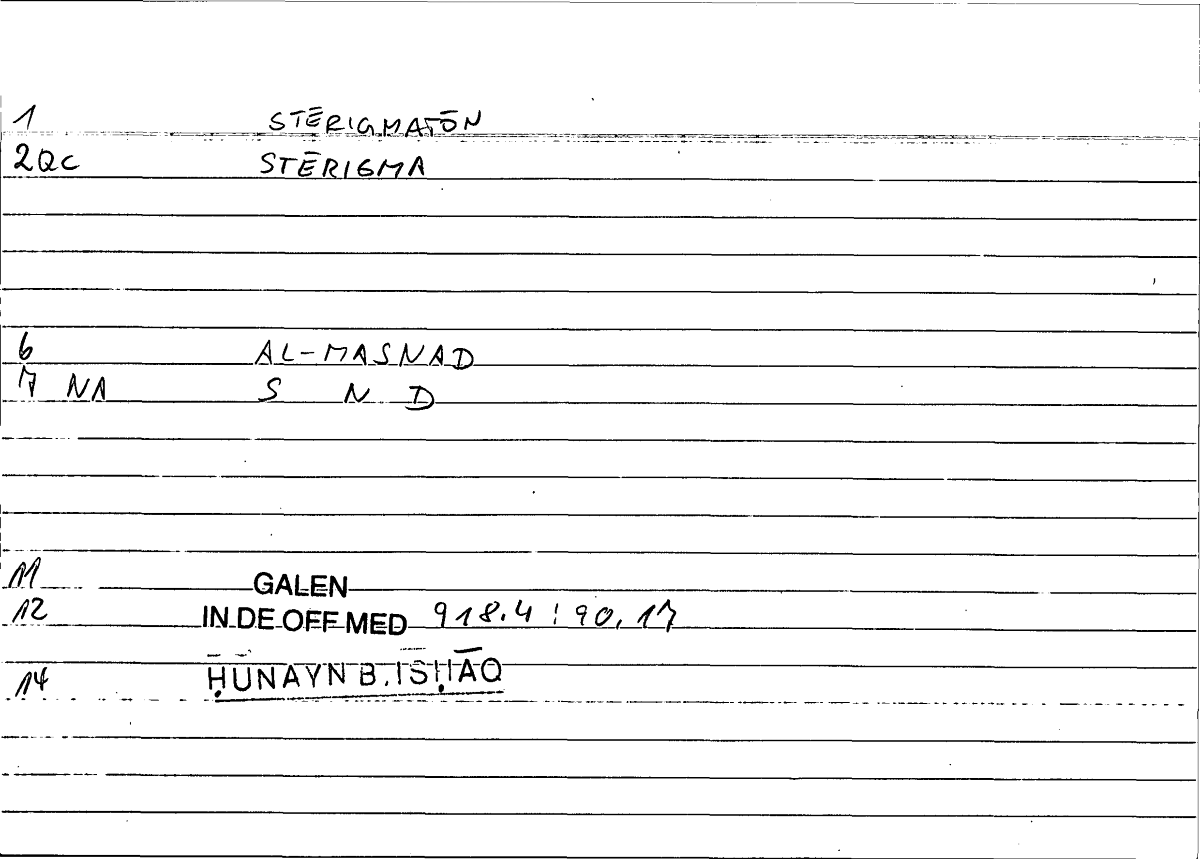 1 STĒRIGMATŌN
2QC STĒRIGMA
6 AL-MASNAD
7 NA S N D
11 GALEN
12 IN DE OFF MED 918.4 : 90,17
14 ḤUNAYN B. ISḤĀQ